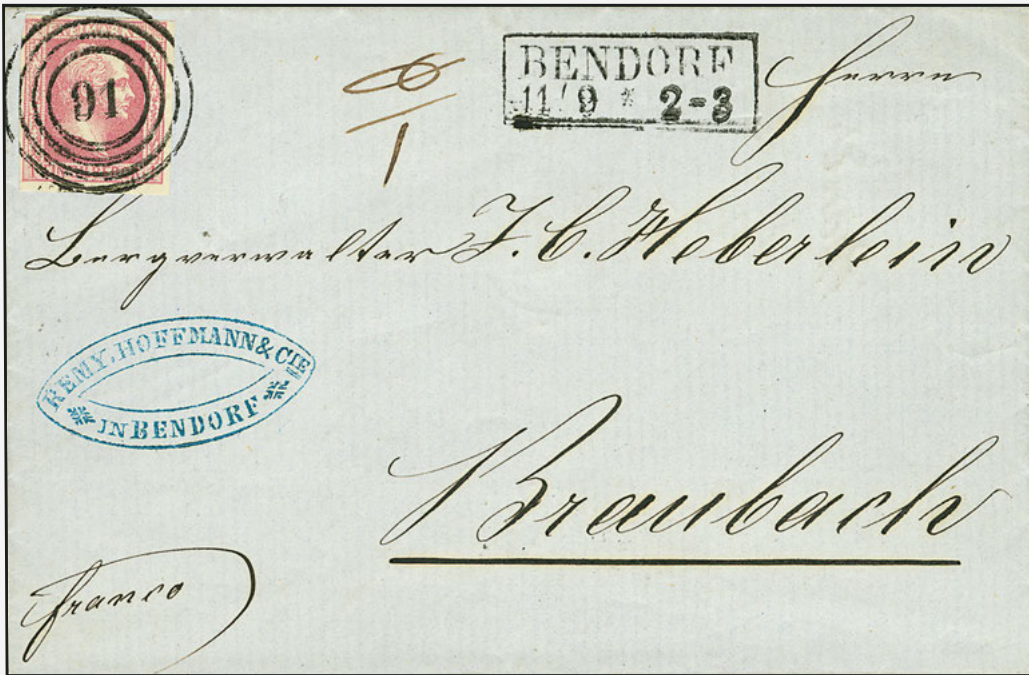 91
BENDORF
11/9 * 2-3
Herrn
Bergverwalter J. C. Heberlein
REMY, HOFFMANN & CIE
IN BENDORF
Braubach
franco